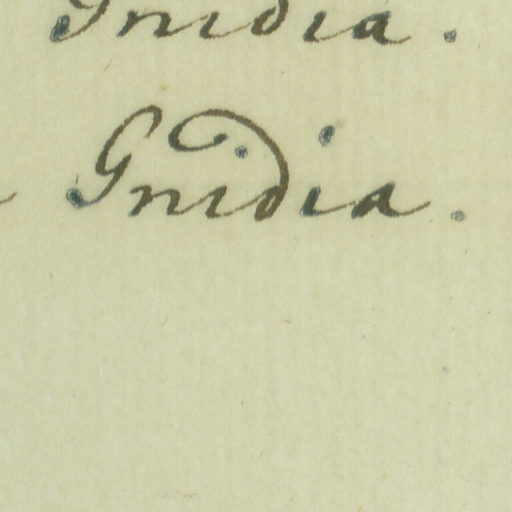 Gnidia.
Gnidia.